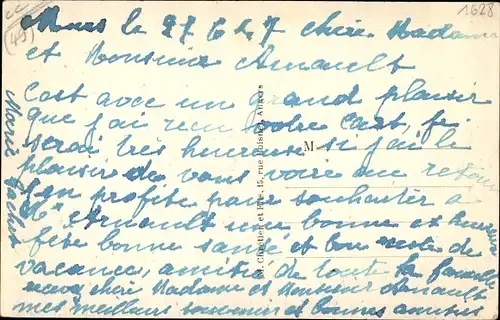 cc
(49)
1628
le 27 6 47 chère Madame
et Monsieur Arnault
C'est avec un grand plaisir
que j'ai reçu votre cart, je
serai très heureuse si j'ai le
plaisir de vous voire au retour
J'en profite pour souhaiter à
Mr Arnault une bonne et heureuse
fête bonne santé et bon reste de
vacance, amitié de toute la famille
recevez chère Madame et Monsieur Arnault
mes meilleurs souvenirs et bonnes amitiés
Marie
M
Chrétien et Fils, 15, rue Voisine, Angers